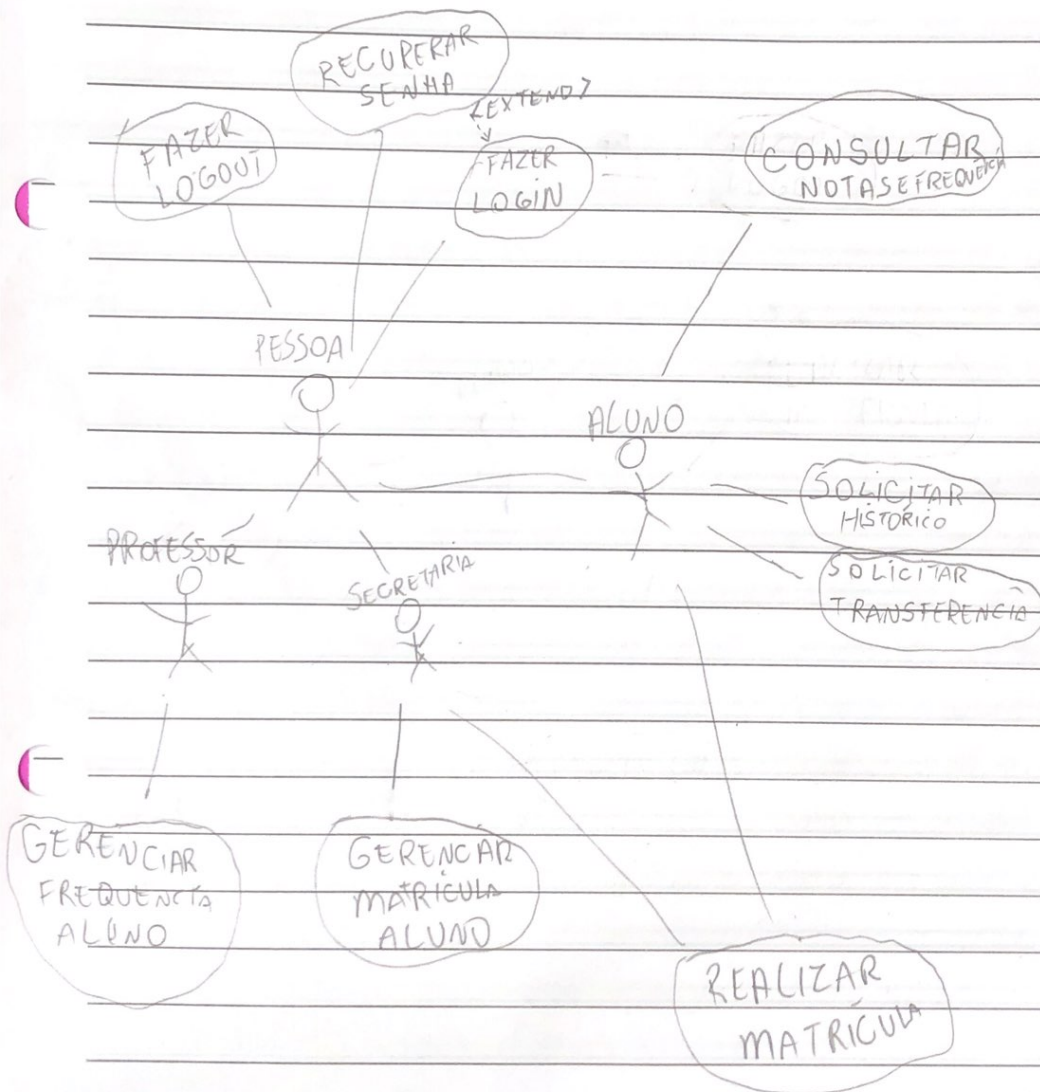 RECUPERAR
SENHA
<EXTEND>
FAZER
LOGOUT
FAZER
LOGIN
CONSULTAR
NOTAS E FREQUÊNCIA
PESSOA
ALUNO
SOLICITAR
HISTÓRICO
SOLICITAR
TRANSFERENCIA
PROFESSOR
SECRETARIA
GERENCIAR
FREQUENCIA
ALUNO
GERENCAR
MATRÍCULA
ALUNO
REALIZAR
MATRÍCULA